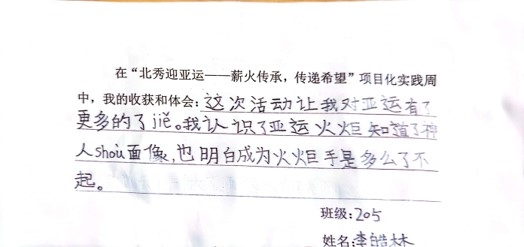 在“北秀迎亚运——薪火传承，传递希望”项目化实践周
中，我的收获和体会：这次活动让我对亚运有了
更多的了jiě。我认识了亚运火炬知道了得
人shòu面像，也明白成为火炬手是多么了不
起。
班级：205
姓名：李皓林